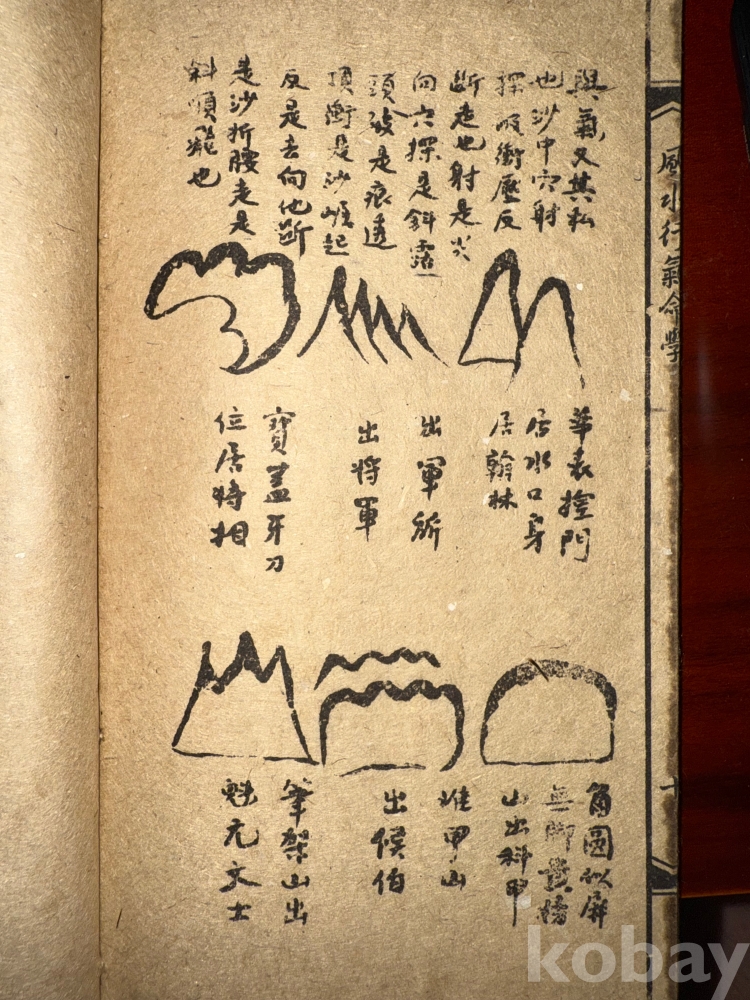 與氣又其私
也沙中穴射
探吸衝壓反
斷走也射是尖
向穴探是斜露
頭殺是痕透
頂衝是沙嵯起
反是去向他斷
是沙折腰走是
斜順飛也
華表捍門
居水口身
居翰林
出軍所
出將軍
寶蓋牙刀
位居將相
角圓似屏
無腳貴榜
山出科甲
堆甲山
出候伯
筆架山出
魁元文士
風水行氣命學
十
kobay